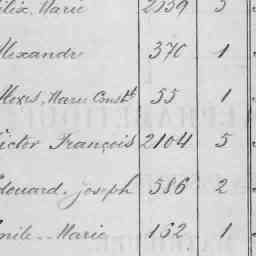 élix, Marie 2339 5
Alexandre 370 1
Alexis, Marie Constt 55 1
Victor François 2104 5
Edouard, Joseph 586 2
Emile -- Marie 132 1